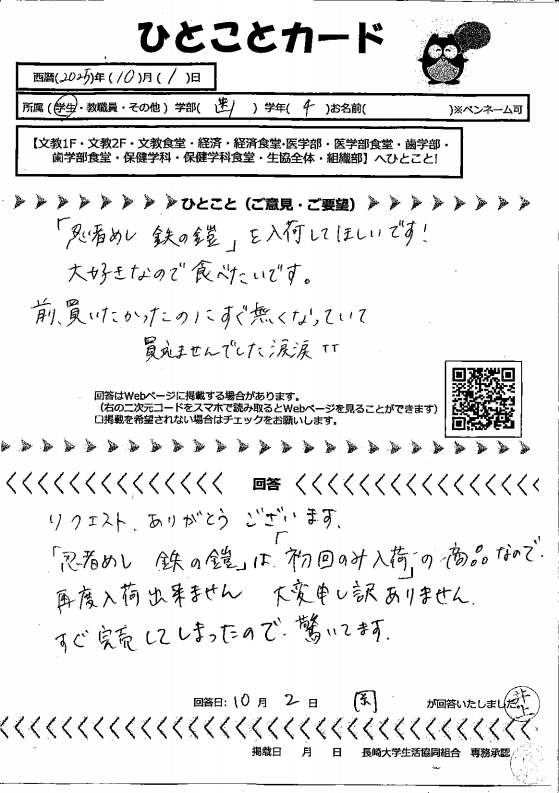 ひとことカード
西暦(2025)年(10)月(1)日
所属(学生・教職員・その他) 学部( 歯 ) 学年( 4 )お名前( )※ペンネーム可
【文教1F・文教2F・文教食堂・経済・経済食堂・医学部・医学部食堂・歯学部・
歯学部食堂・保健学科・保健学科食堂・生協全体・組織部】へひとこと!
ひとこと(ご意見・ご要望)
「忍者めし 鉄の鎧」を入荷してほしいです!
大好きなので食べたいです。
前、買いたかったのにすぐ無くなっていて
買えませんでした涙涙 TT
回答はWebページに掲載する場合があります。
(右の二次元コードをスマホで読み取るとWebページを見ることができます)
□掲載を希望されない場合はチェックをお願いします。
回答
リクエスト、ありがとうございます。
「忍者めし 鉄の鎧」は「初回のみ入荷」の商品なので、
再度入荷出来ません 大変申し訳ありません。
すぐ完売してしまったので、驚いてます。
回答日: 10月 2日 が回答いたしました。
井上
掲載日 月 日 長崎大学生活協同組合 専務承認